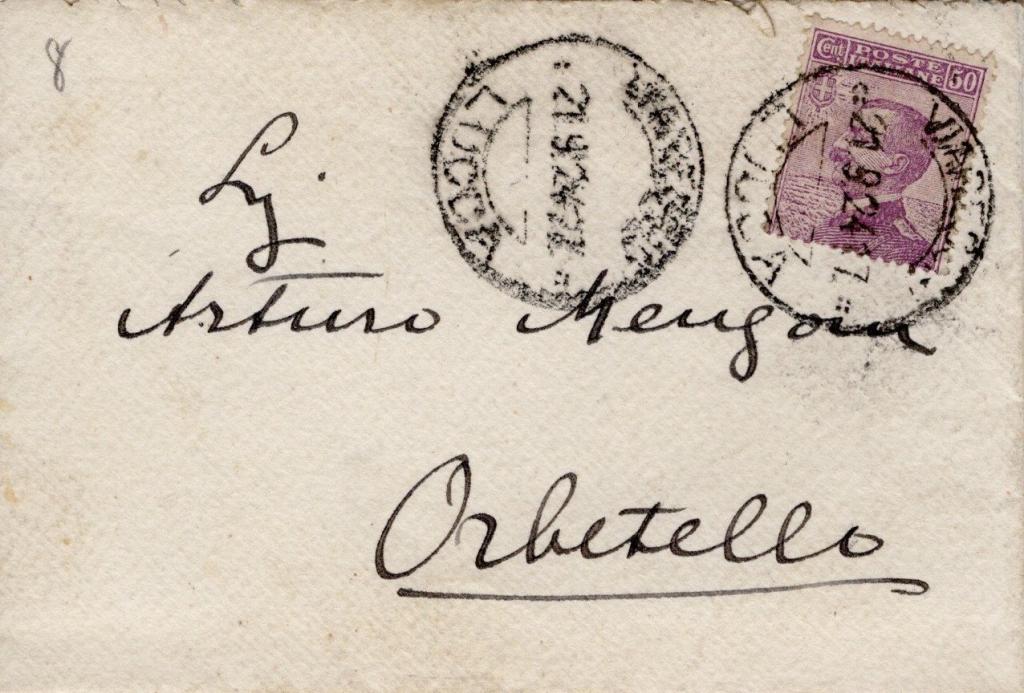 8
Cent POSTE ITALIANE 50
VIAREGGIO
21.9.24.17
LUCCA
VIAREGGIO
21.9.24.17
LUCCA
Sig
Arturo Mengoni
Orbetello